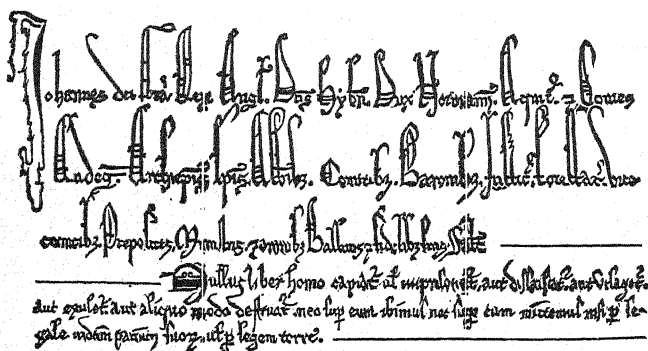 Johannes dei gra Rex Angl. Dns Hybn. Dux Normann. Aquit. & Comes
Andeg. Archiepis. Epis. Abbibz. Comitibz. Baronibz. Justic. Forestar. vice
comitibz. Prepositis. Ministris. & omnibz Ballivis & fidelibz suis. Saltm
Nullus liber homo capiat. ul imprisonet. aut dissaisiat. aut utlaget.
aut exulet. aut aliquo modo destruat. nec sup eum ibimus nec sup eum mittemus nisi p le
gale judicium parium suorz. ul p legem terre.